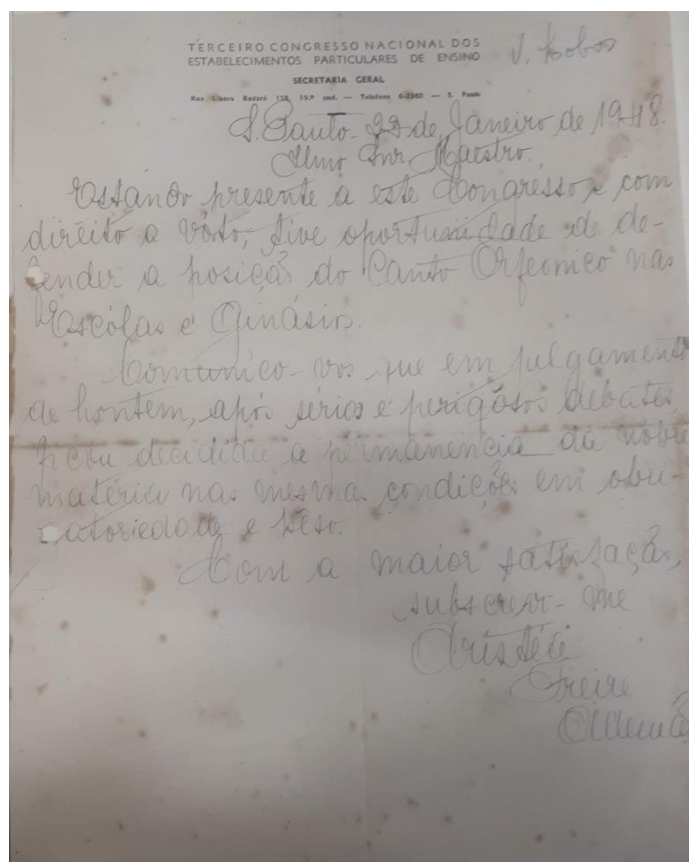 TERCEIRO CONGRESSO NACIONAL DOS
ESTABELECIMENTOS PARTICULARES DE ENSINO
V. Lobos
SECRETARIA GERAL
Rua Líbero Badaró 158, 19.º and. — Telefone — S. Paulo
S. Paulo - 22 de Janeiro de 1948.
Ilmo Snr. Maestro.
Estando presente a este Congresso e com
direito a vóto, tive oportunidade de de-
fender a posição do Canto Orfeonico nas
Escólas e Ginásios.
Comunico-vos que em julgamento
de hontem, após sérios e perigósos debates
ficou decidida a permanencia da nobre
matéria nas mesmas condições em obri-
gatoriedade e peso.
Com a maior satisfação,
subscrevo-me
Freire